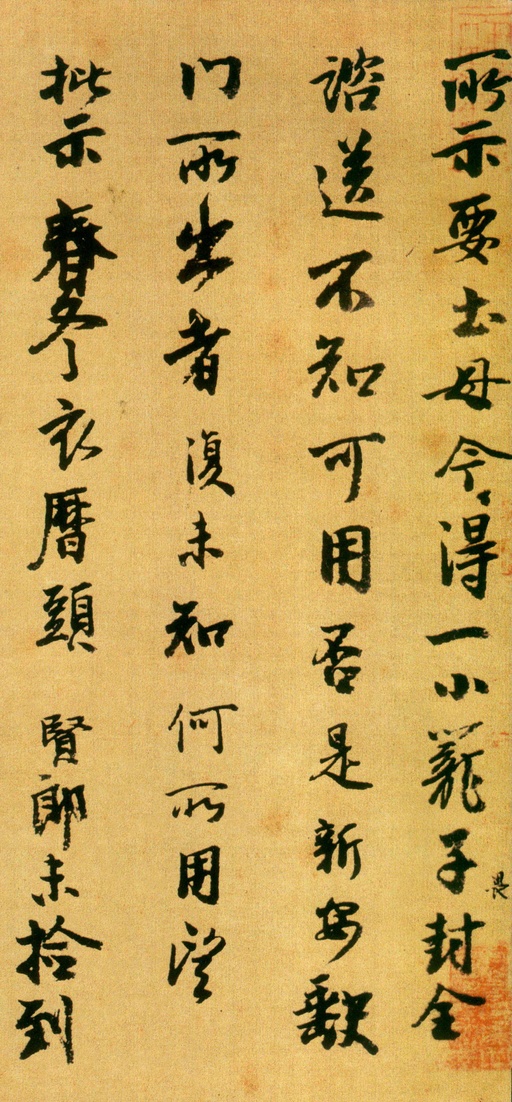 所示要土母今得一小籠子封全
畏
諮送不知可用否是新安缺
門所出者復未知何所用望
批示春冬衣曆頭賢郎未拾到